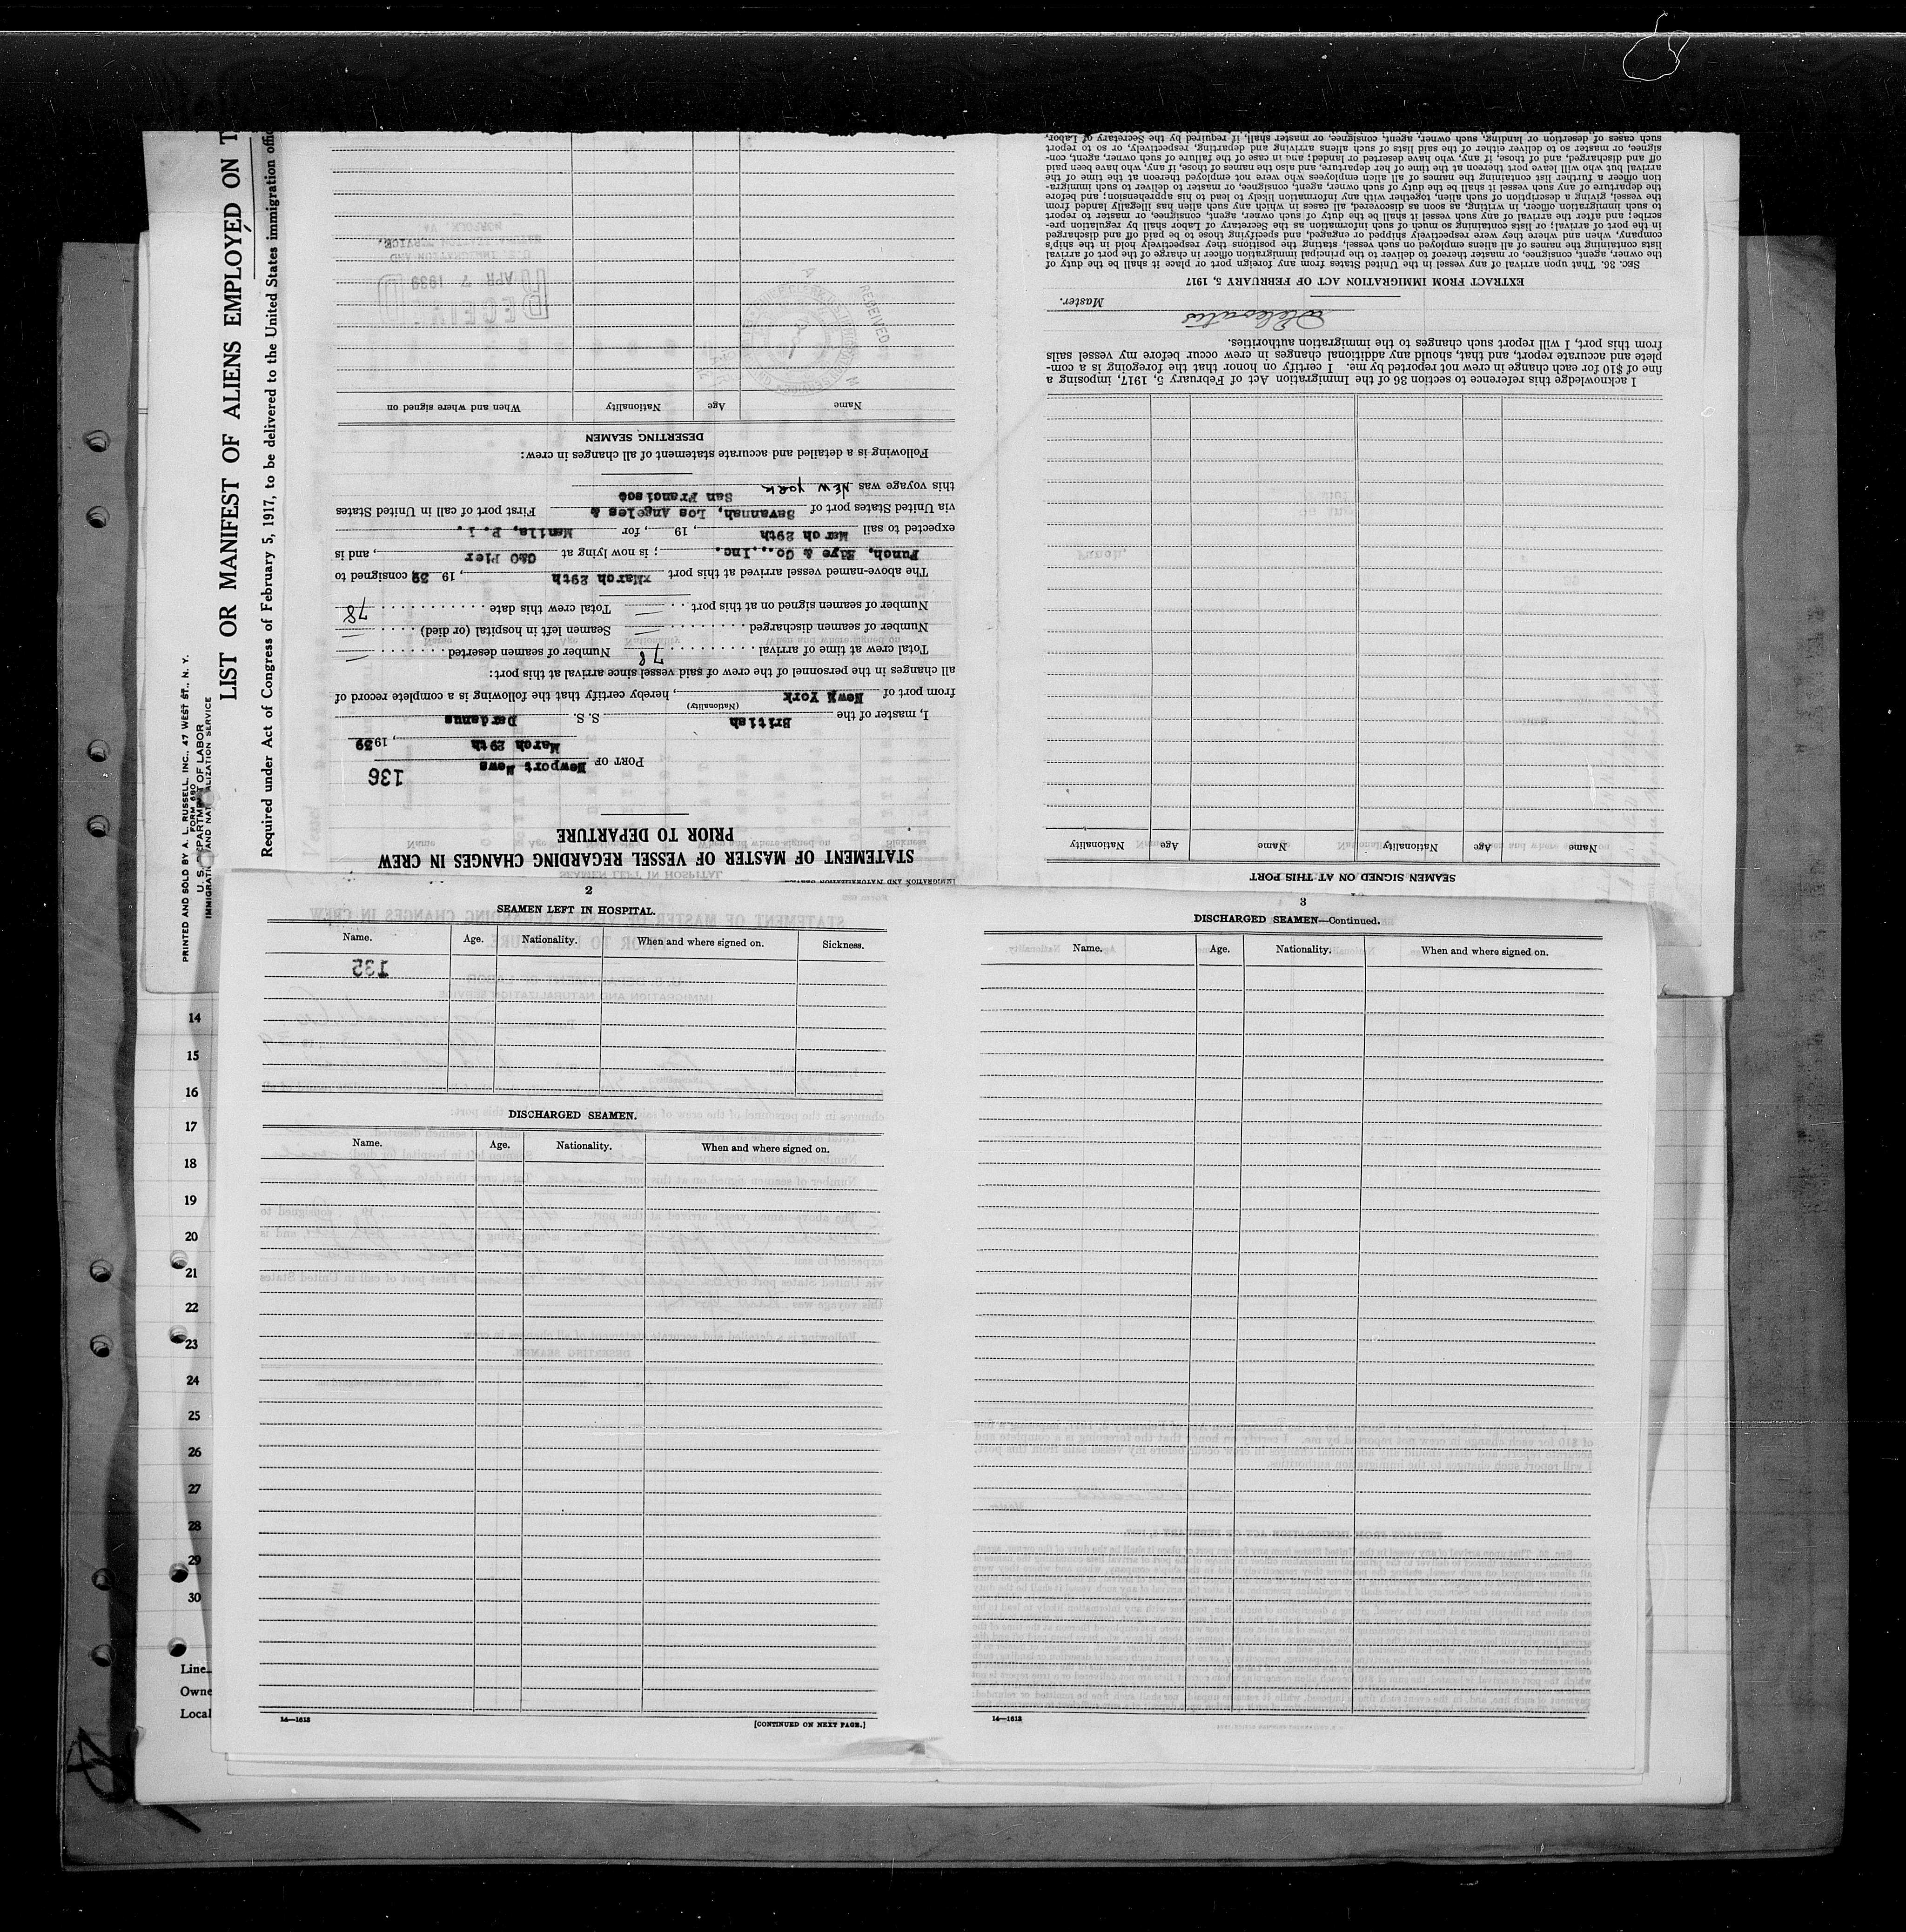 PRINTED AND SOLD BY A. L. RUSSELL, INC., 47 WEST ST., N. Y.
FORM 680
U. S. DEPARTMENT OF LABOR
IMMIGRATION AND NATURALIZATION SERVICE
LIST OR MANIFEST OF ALIENS EMPLOYED ON T
Required under Act of Congress of February 5, 1917, to be delivered to the United States immigration offic
STATEMENT OF MASTER OF VESSEL REGARDING CHANGES IN CREW
PRIOR TO DEPARTURE
136
PORT OF Newport News
March 29th, 1939
I, master of the British S. S. Dardanus
(Nationality)
from port of New York, hereby certify that the following is a complete record of
all changes in the personnel of the crew of said vessel since arrival at this port:
Total crew at time of arrival 78 Number of seamen deserted —
Number of seamen discharged — Seamen left in hospital (or died) —
Number of seamen signed on at this port — Total crew this date 78
The above-named vessel arrived at this port March 29th, 19 39, consigned to
Funch, Edye & Co., Inc.; is now lying at C&O Pier, and is
expected to sail March 29th, 19 , for Manila, P. I.
via United States port of Savannah, Los Angeles & San Francisco First port of call in United States
this voyage was NEW York
Following is a detailed and accurate statement of all changes in crew:
DESERTING SEAMEN
Name Age Nationality When and where signed on
RECEIVED
RECEIVED
APR 7 1939
U.S. IMMIGRATION AND
NATURALIZATION SERVICE,
NORFOLK, VA.
SEAMEN SIGNED ON AT THIS PORT
Name Age Nationality Name Age Nationality
I acknowledge this reference to section 36 of the Immigration Act of February 5, 1917, imposing a
fine of $10 for each change in crew not reported by me. I certify on honor that the foregoing is a com-
plete and accurate report, and that, should any additional changes in crew occur before my vessel sails
from this port, I will report such changes to the immigration authorities.
Master.
EXTRACT FROM IMMIGRATION ACT OF FEBRUARY 5, 1917
SEC. 36. That upon arrival of any vessel in the United States from any foreign port or place it shall be the duty of
the owner, agent, consignee, or master thereof to deliver to the principal immigration officer in charge of the port of arrival
lists containing the names of all aliens employed on such vessel, stating the positions they respectively hold in the ship's
company, when and where they were respectively shipped or engaged, and specifying those to be paid off and discharged
in the port of arrival; or lists containing so much of such information as the Secretary of Labor shall by regulation pre-
scribe; and after the arrival of any such vessel it shall be the duty of such owner, agent, consignee, or master to report
to such immigration officer, in writing, as soon as discovered, all cases in which any such alien has illegally landed from
the vessel, giving a description of such alien, together with any information likely to lead to his apprehension; and before
the departure of any such vessel it shall be the duty of such owner, agent, consignee, or master to deliver to such immigra-
tion officer a further list containing the names of all alien employees who were not employed thereon at the time of the
arrival but who will leave port thereon at the time of her departure, and also the names of those, if any, who have been paid
off and discharged, and of those, if any, who have deserted or landed; and in case of the failure of such owner, agent, con-
signee, or master so to deliver either of the said lists of such aliens arriving and departing, respectively, or so to report
such cases of desertion or landing, such owner, agent, consignee, or master shall, if required by the Secretary of Labor,
2
SEAMEN LEFT IN HOSPITAL.
Name. Age. Nationality. When and where signed on. Sickness.
135
DISCHARGED SEAMEN.
Name. Age. Nationality. When and where signed on.
14—1612
[CONTINUED ON NEXT PAGE.]
3
DISCHARGED SEAMEN—Continued.
Name. Age. Nationality. When and where signed on.
14—1612
14
15
16
17
18
19
20
21
22
23
24
25
26
27
28
29
30
Line
Owne
Local